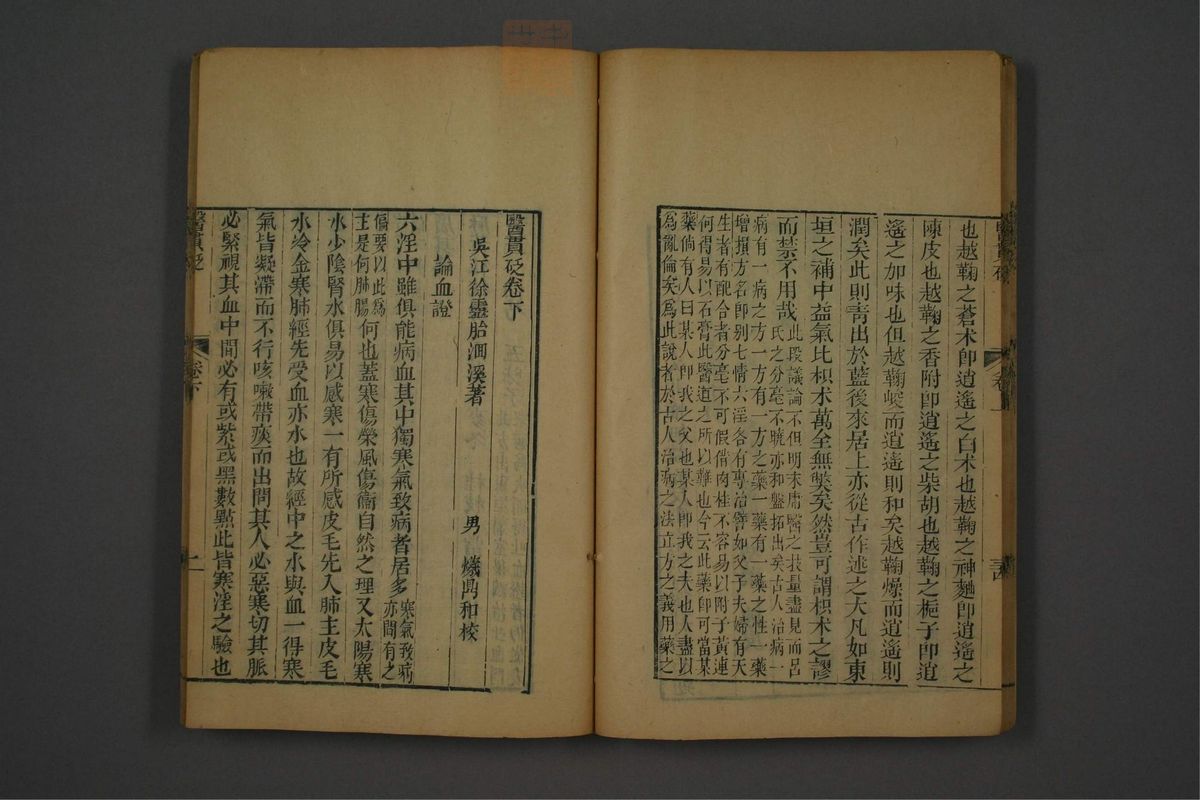 也越鞠之蒼术卽逍遙之白术也越鞠之神麯卽逍遙之
陳皮也越鞠之香附卽逍遙之柴胡也越鞠之梔子卽逍
遙之加味也但越鞠峻而逍遙則和矣越鞠燥而逍遙則
潤矣此則青出於藍後來居上亦從古作述之大凡如東
垣之補中益氣比枳术萬全無獘矣然豈可謂枳术之謬
而禁不用哉
此段議論不但明末庸醫之技量盡見而呂
氏之分毫不曉亦和盤拓出矣古人治病一
病有一病之方一方有一方之藥一藥有一藥之性一藥
增損方名卽别七情六淫各有專治譬如父子夫婦有天
生者有配合者分毫不可假借肉桂不容易以附子黃連
何得易以石膏此醫道之所以難也今云此藥卽可當某
藥倘有人曰某人卽我之父也某人卽我之夫也人盡以
為亂倫矣為此說者於古人治病之法立方之義用藥之
醫貫砭卷下
吳江徐靈胎洄溪著
男 爔鼎和校
論血證
六淫中雖俱能病血其中獨寒氣致病者居多
寒氣致病
亦間有之
偏要以此為
主是何肺腸
何也蓋寒傷榮風傷衞自然之理又太陽寒
水少陰腎水俱易以感寒一有所感皮毛先入肺主皮毛
水冷金寒肺經先受血亦水也故經中之水與血一得寒
氣皆凝滯而不行咳嗽帶痰而出問其人必惡寒切其脈
必緊視其血中間必有或紫或黑數點此皆寒淫之驗也
醫貫砭
卷下
一